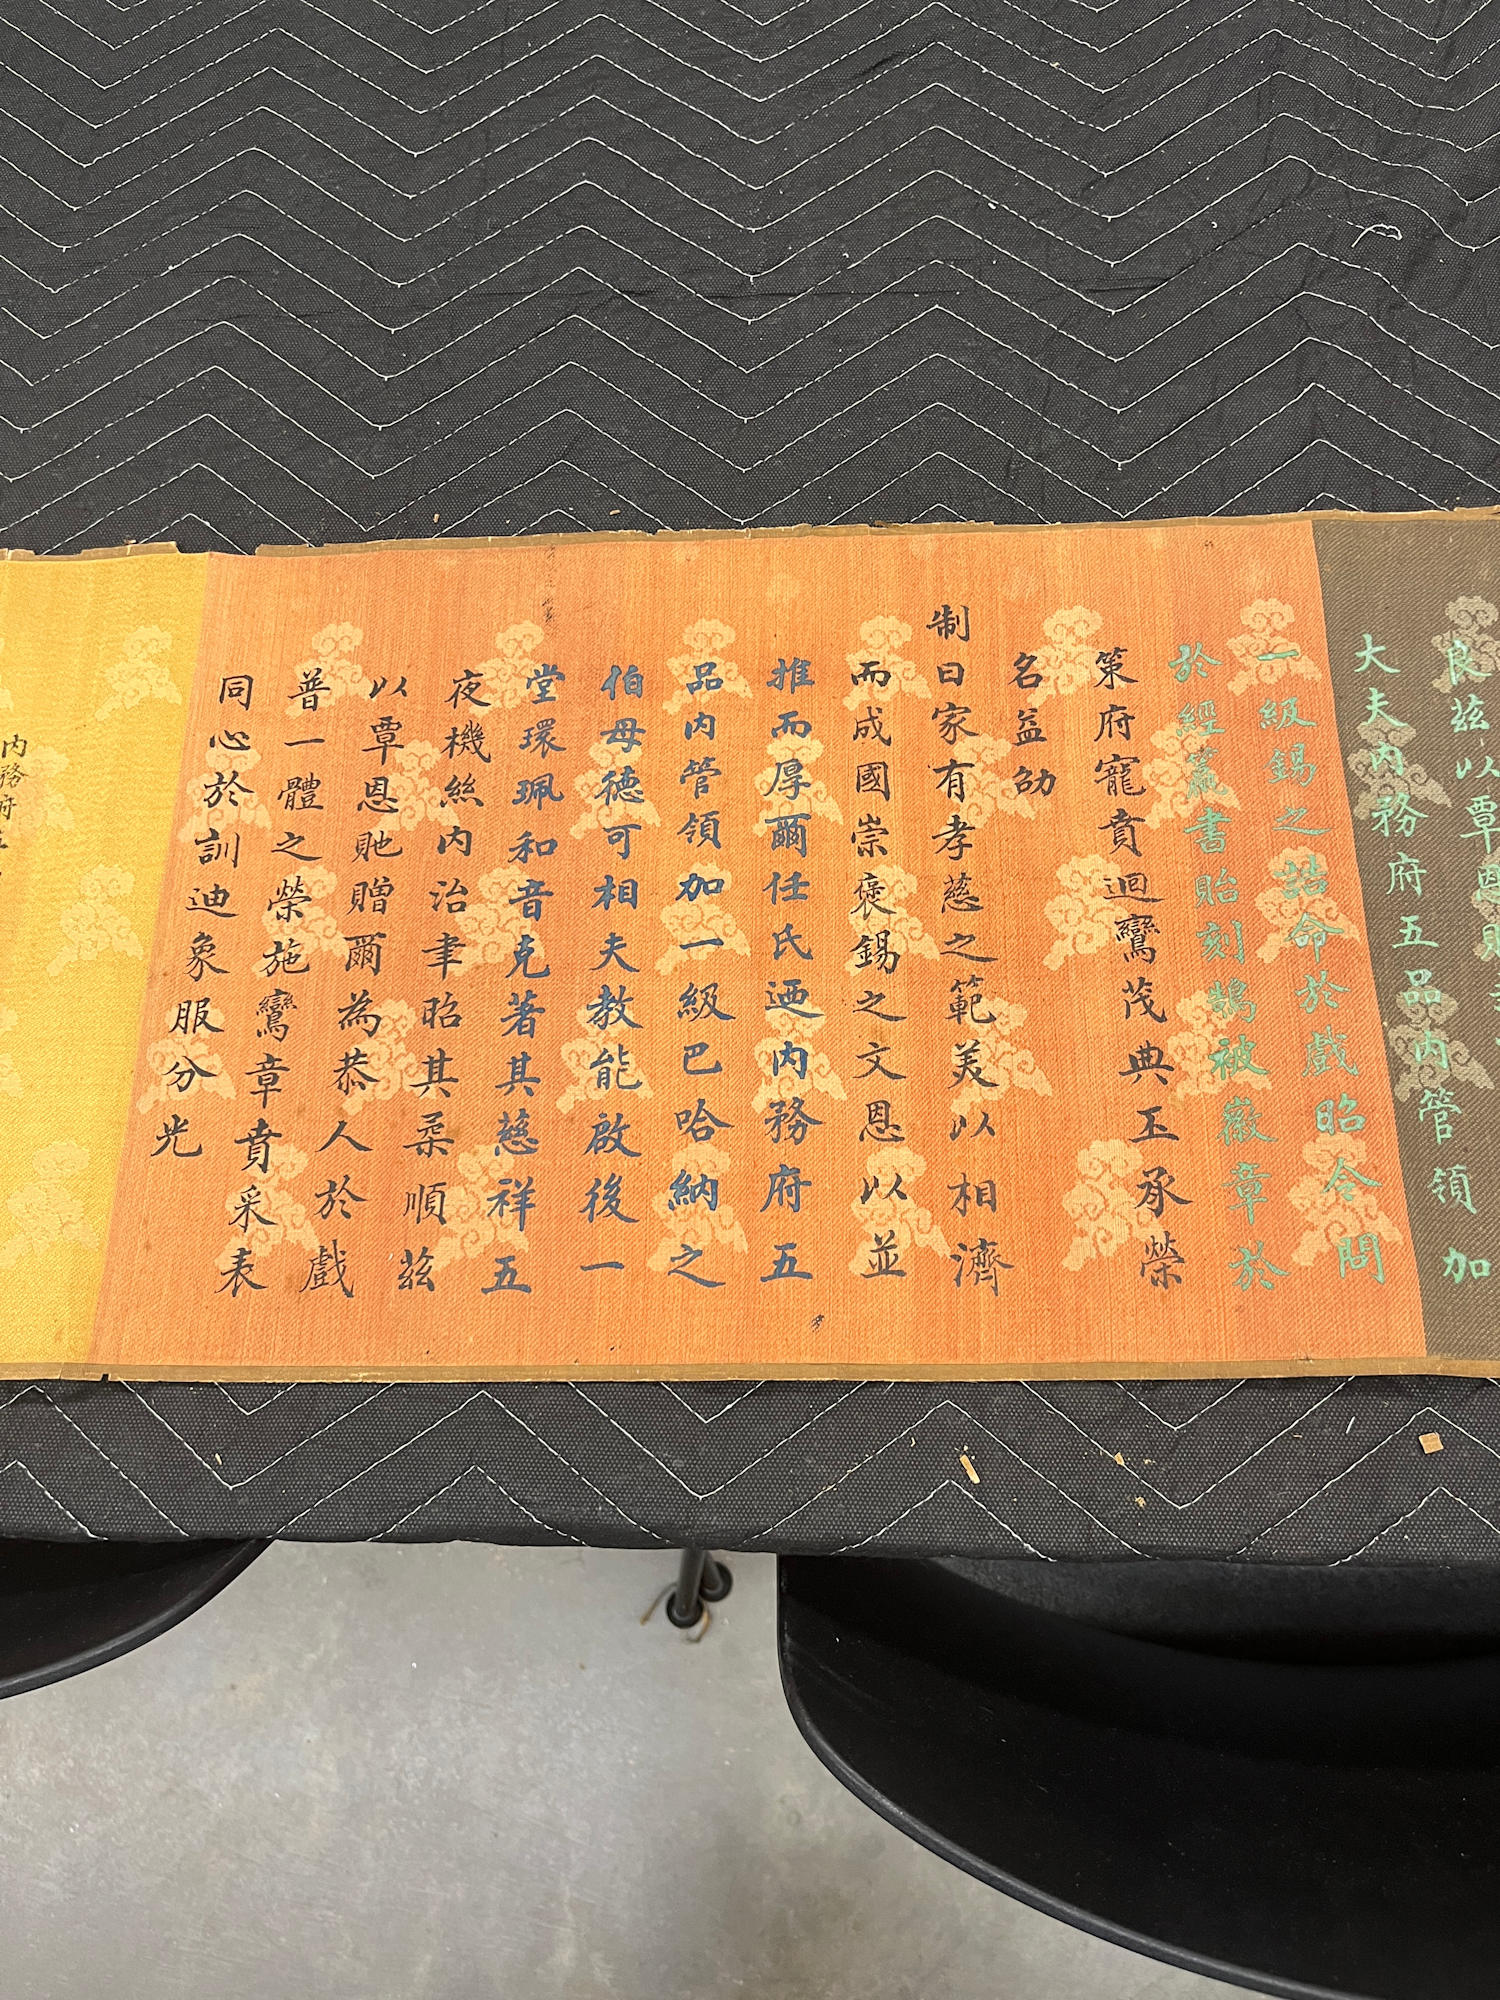 良茲以覃恩貤
大夫內務府五品內管領加
一級錫之誥命於戲昭令問
於經籯書貽刻鵠被徽章於
策府寵賁迴鸞茂典丕承榮
名益劭
制曰家有孝慈之範美以相濟
而成國崇褒錫之文恩以並
推而厚爾任氏迺內務府五
品內管領加一級巴哈納之
伯母德可相夫教能啟後一
堂環珮和音克著其慈祥五
夜機絲內治聿昭其柔順茲
以覃恩貤贈爾為恭人於戲
普一體之榮施鸞章賁采表
同心於訓迪象服分光
內務府